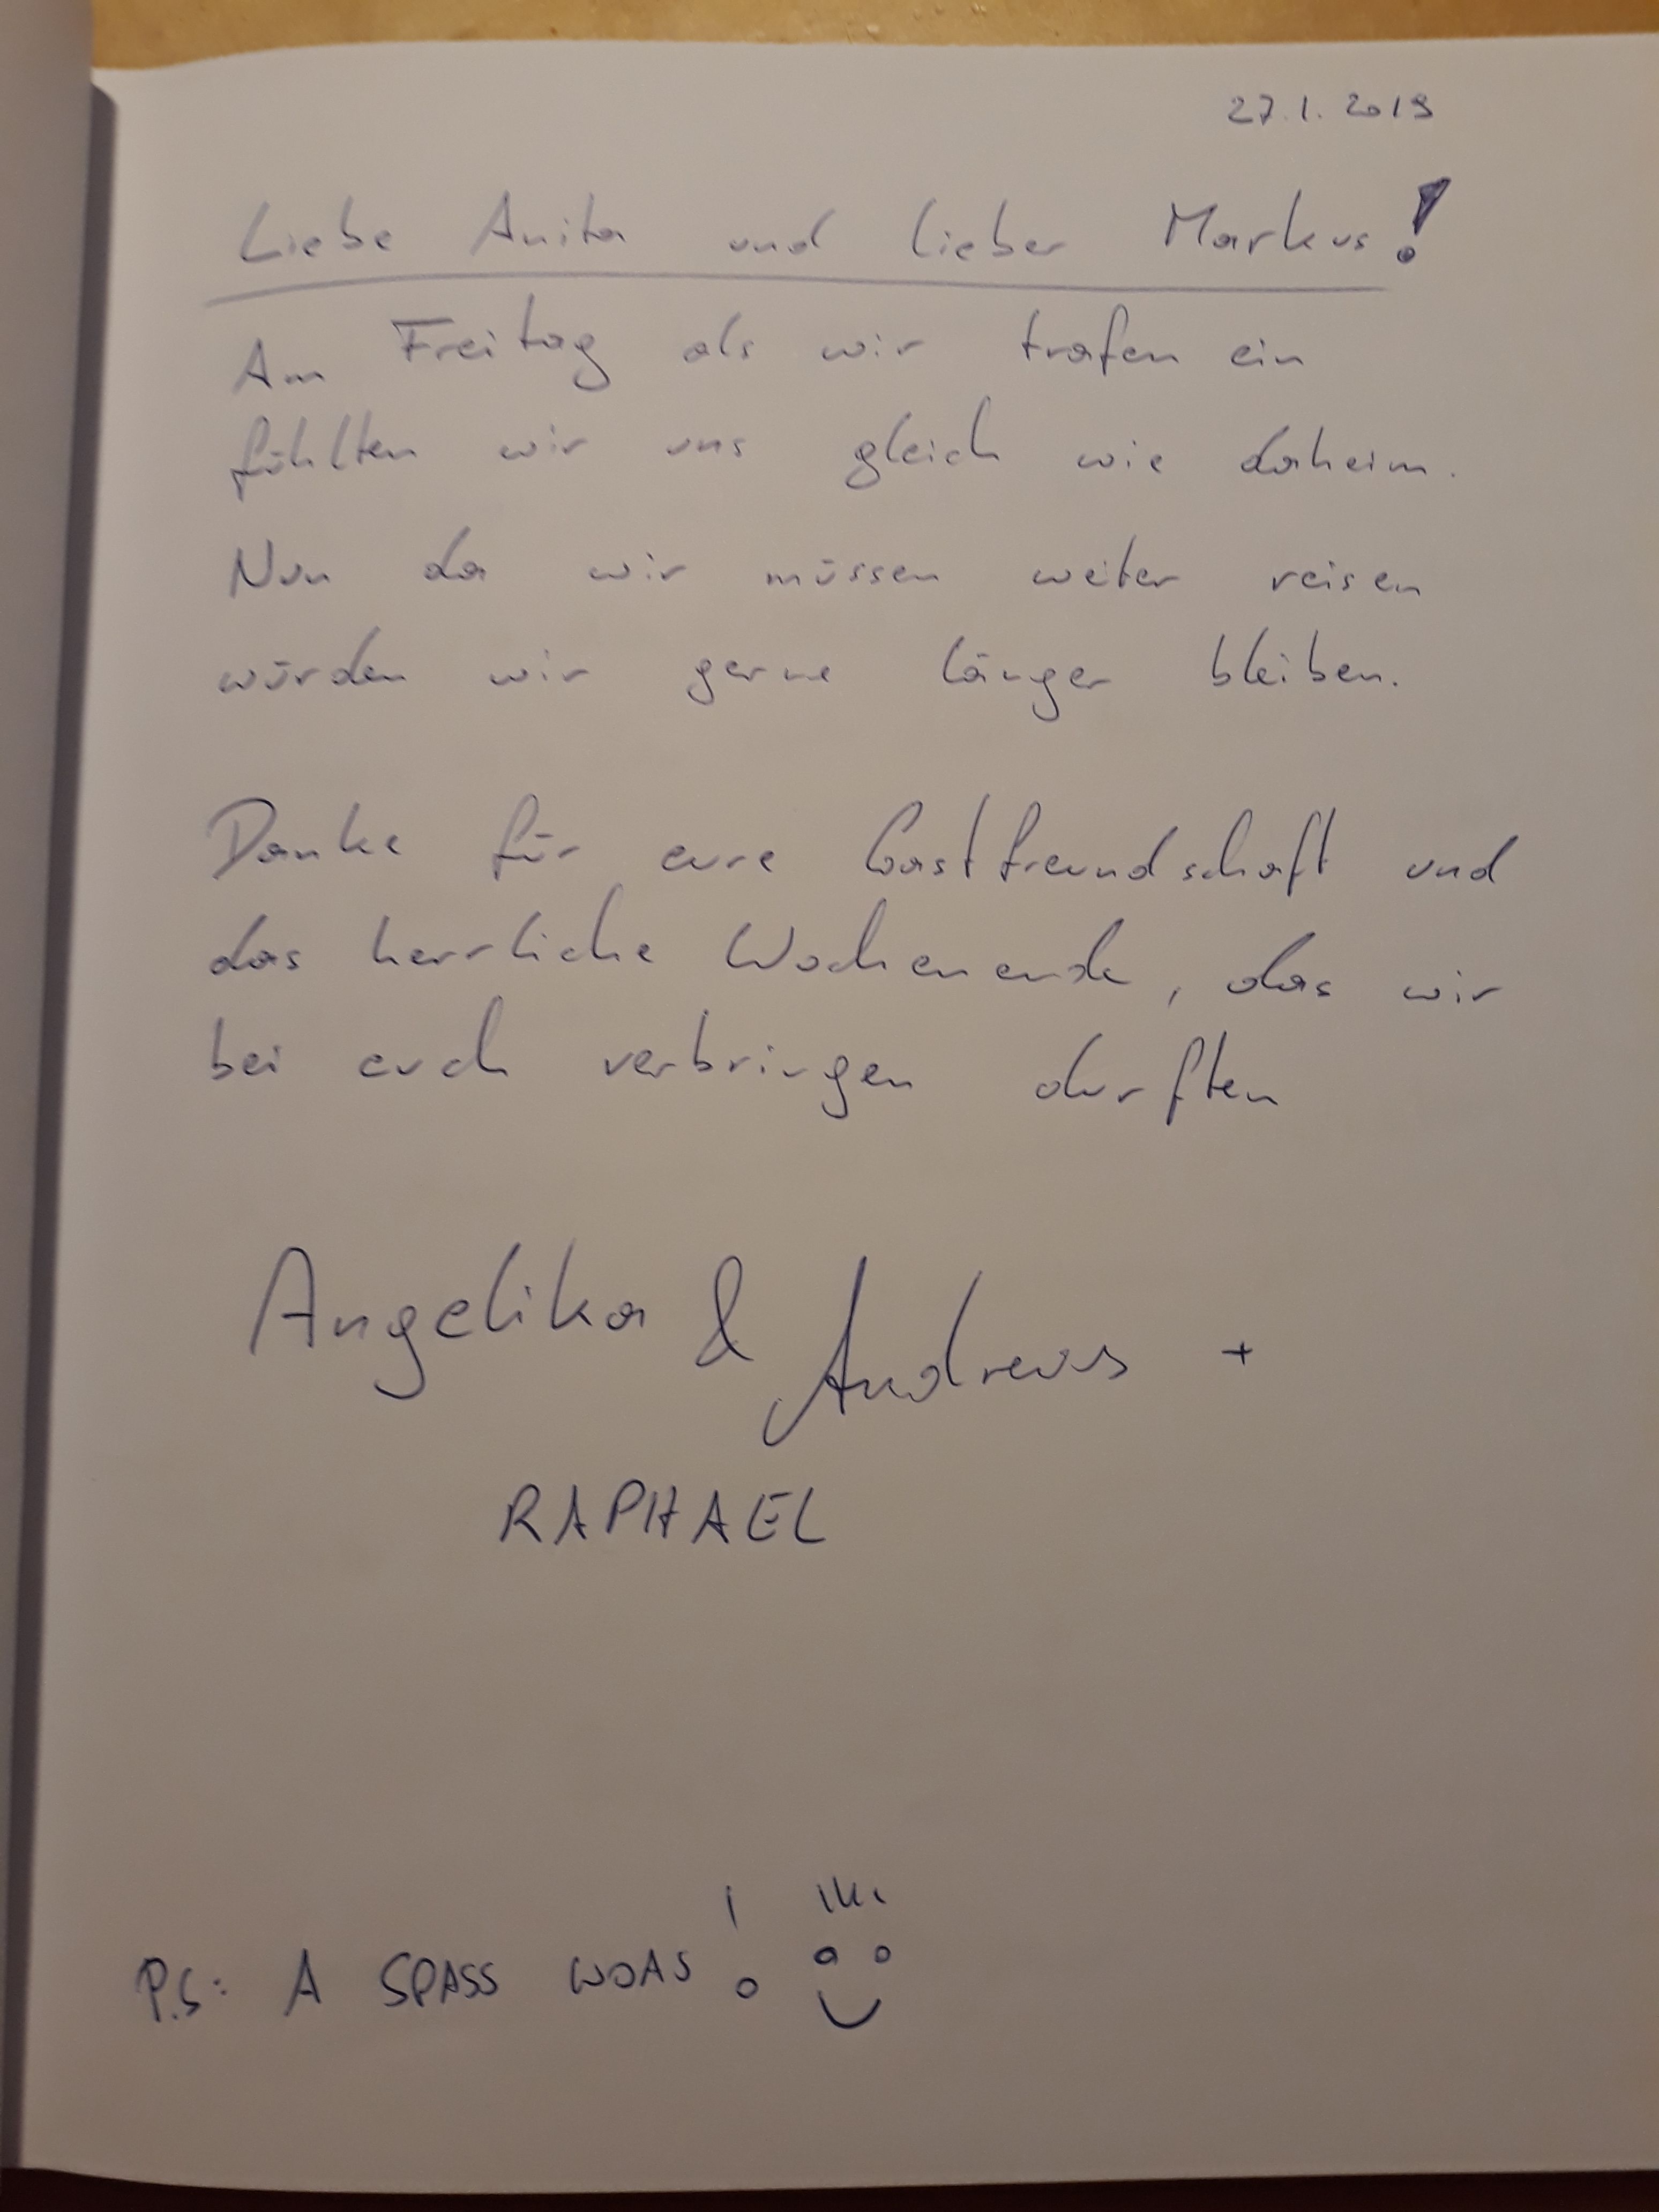 27.1.2019
Liebe Anita und lieber Markus!
Am Freitag als wir trafen ein
fühlten wir uns gleich wie daheim.
Nun da wir müssen weiter reisen
würden wir gerne länger bleiben.
Danke für eure Gastfreundschaft und
das herrliche Wochenende, das wir
bei euch verbringen durften
Angelika & Andreas +
RAPHAEL
P.S: A SPASS WOAS!